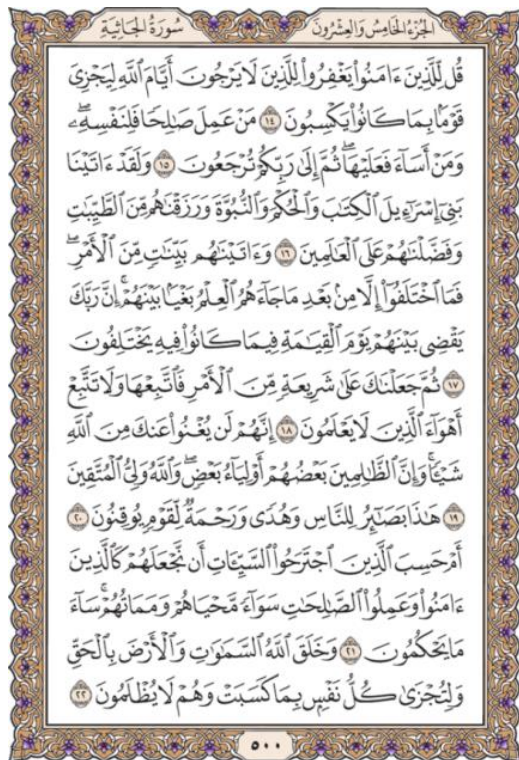 الجزء الخامس والعشرون
سورة الجاثية
قُل لِّلَّذِينَ ءَامَنُوا۟ يَغْفِرُوا۟ لِلَّذِينَ لَا يَرْجُونَ أَيَّامَ ٱللَّهِ لِيَجْزِىَ
قَوْمًۢا بِمَا كَانُوا۟ يَكْسِبُونَ ١٤ مَنْ عَمِلَ صَـٰلِحًا فَلِنَفْسِهِۦ ۖ
وَمَنْ أَسَآءَ فَعَلَيْهَا ۖ ثُمَّ إِلَىٰ رَبِّكُمْ تُرْجَعُونَ ١٥ وَلَقَدْ ءَاتَيْنَا
بَنِىٓ إِسْرَٰٓءِيلَ ٱلْكِتَـٰبَ وَٱلْحُكْمَ وَٱلنُّبُوَّةَ وَرَزَقْنَـٰهُم مِّنَ ٱلطَّيِّبَـٰتِ
وَفَضَّلْنَـٰهُمْ عَلَى ٱلْعَـٰلَمِينَ ١٦ وَءَاتَيْنَـٰهُم بَيِّنَـٰتٍ مِّنَ ٱلْأَمْرِ ۖ
فَمَا ٱخْتَلَفُوٓا۟ إِلَّا مِنۢ بَعْدِ مَا جَآءَهُمُ ٱلْعِلْمُ بَغْيًۢا بَيْنَهُمْ ۚ إِنَّ رَبَّكَ
يَقْضِى بَيْنَهُمْ يَوْمَ ٱلْقِيَـٰمَةِ فِيمَا كَانُوا۟ فِيهِ يَخْتَلِفُونَ
١٧ ثُمَّ جَعَلْنَـٰكَ عَلَىٰ شَرِيعَةٍ مِّنَ ٱلْأَمْرِ فَٱتَّبِعْهَا وَلَا تَتَّبِعْ
أَهْوَآءَ ٱلَّذِينَ لَا يَعْلَمُونَ ١٨ إِنَّهُمْ لَن يُغْنُوا۟ عَنكَ مِنَ ٱللَّهِ
شَيْـًٔا ۚ وَإِنَّ ٱلظَّـٰلِمِينَ بَعْضُهُمْ أَوْلِيَآءُ بَعْضٍ ۖ وَٱللَّهُ وَلِىُّ ٱلْمُتَّقِينَ
١٩ هَـٰذَا بَصَـٰٓئِرُ لِلنَّاسِ وَهُدًى وَرَحْمَةٌ لِّقَوْمٍ يُوقِنُونَ ٢٠
أَمْ حَسِبَ ٱلَّذِينَ ٱجْتَرَحُوا۟ ٱلسَّيِّـَٔاتِ أَن نَّجْعَلَهُمْ كَٱلَّذِينَ
ءَامَنُوا۟ وَعَمِلُوا۟ ٱلصَّـٰلِحَـٰتِ سَوَآءً مَّحْيَاهُمْ وَمَمَاتُهُمْ ۚ سَآءَ
مَا يَحْكُمُونَ ٢١ وَخَلَقَ ٱللَّهُ ٱلسَّمَـٰوَٰتِ وَٱلْأَرْضَ بِٱلْحَقِّ
وَلِتُجْزَىٰ كُلُّ نَفْسٍۭ بِمَا كَسَبَتْ وَهُمْ لَا يُظْلَمُونَ ٢٢
٥٠٠